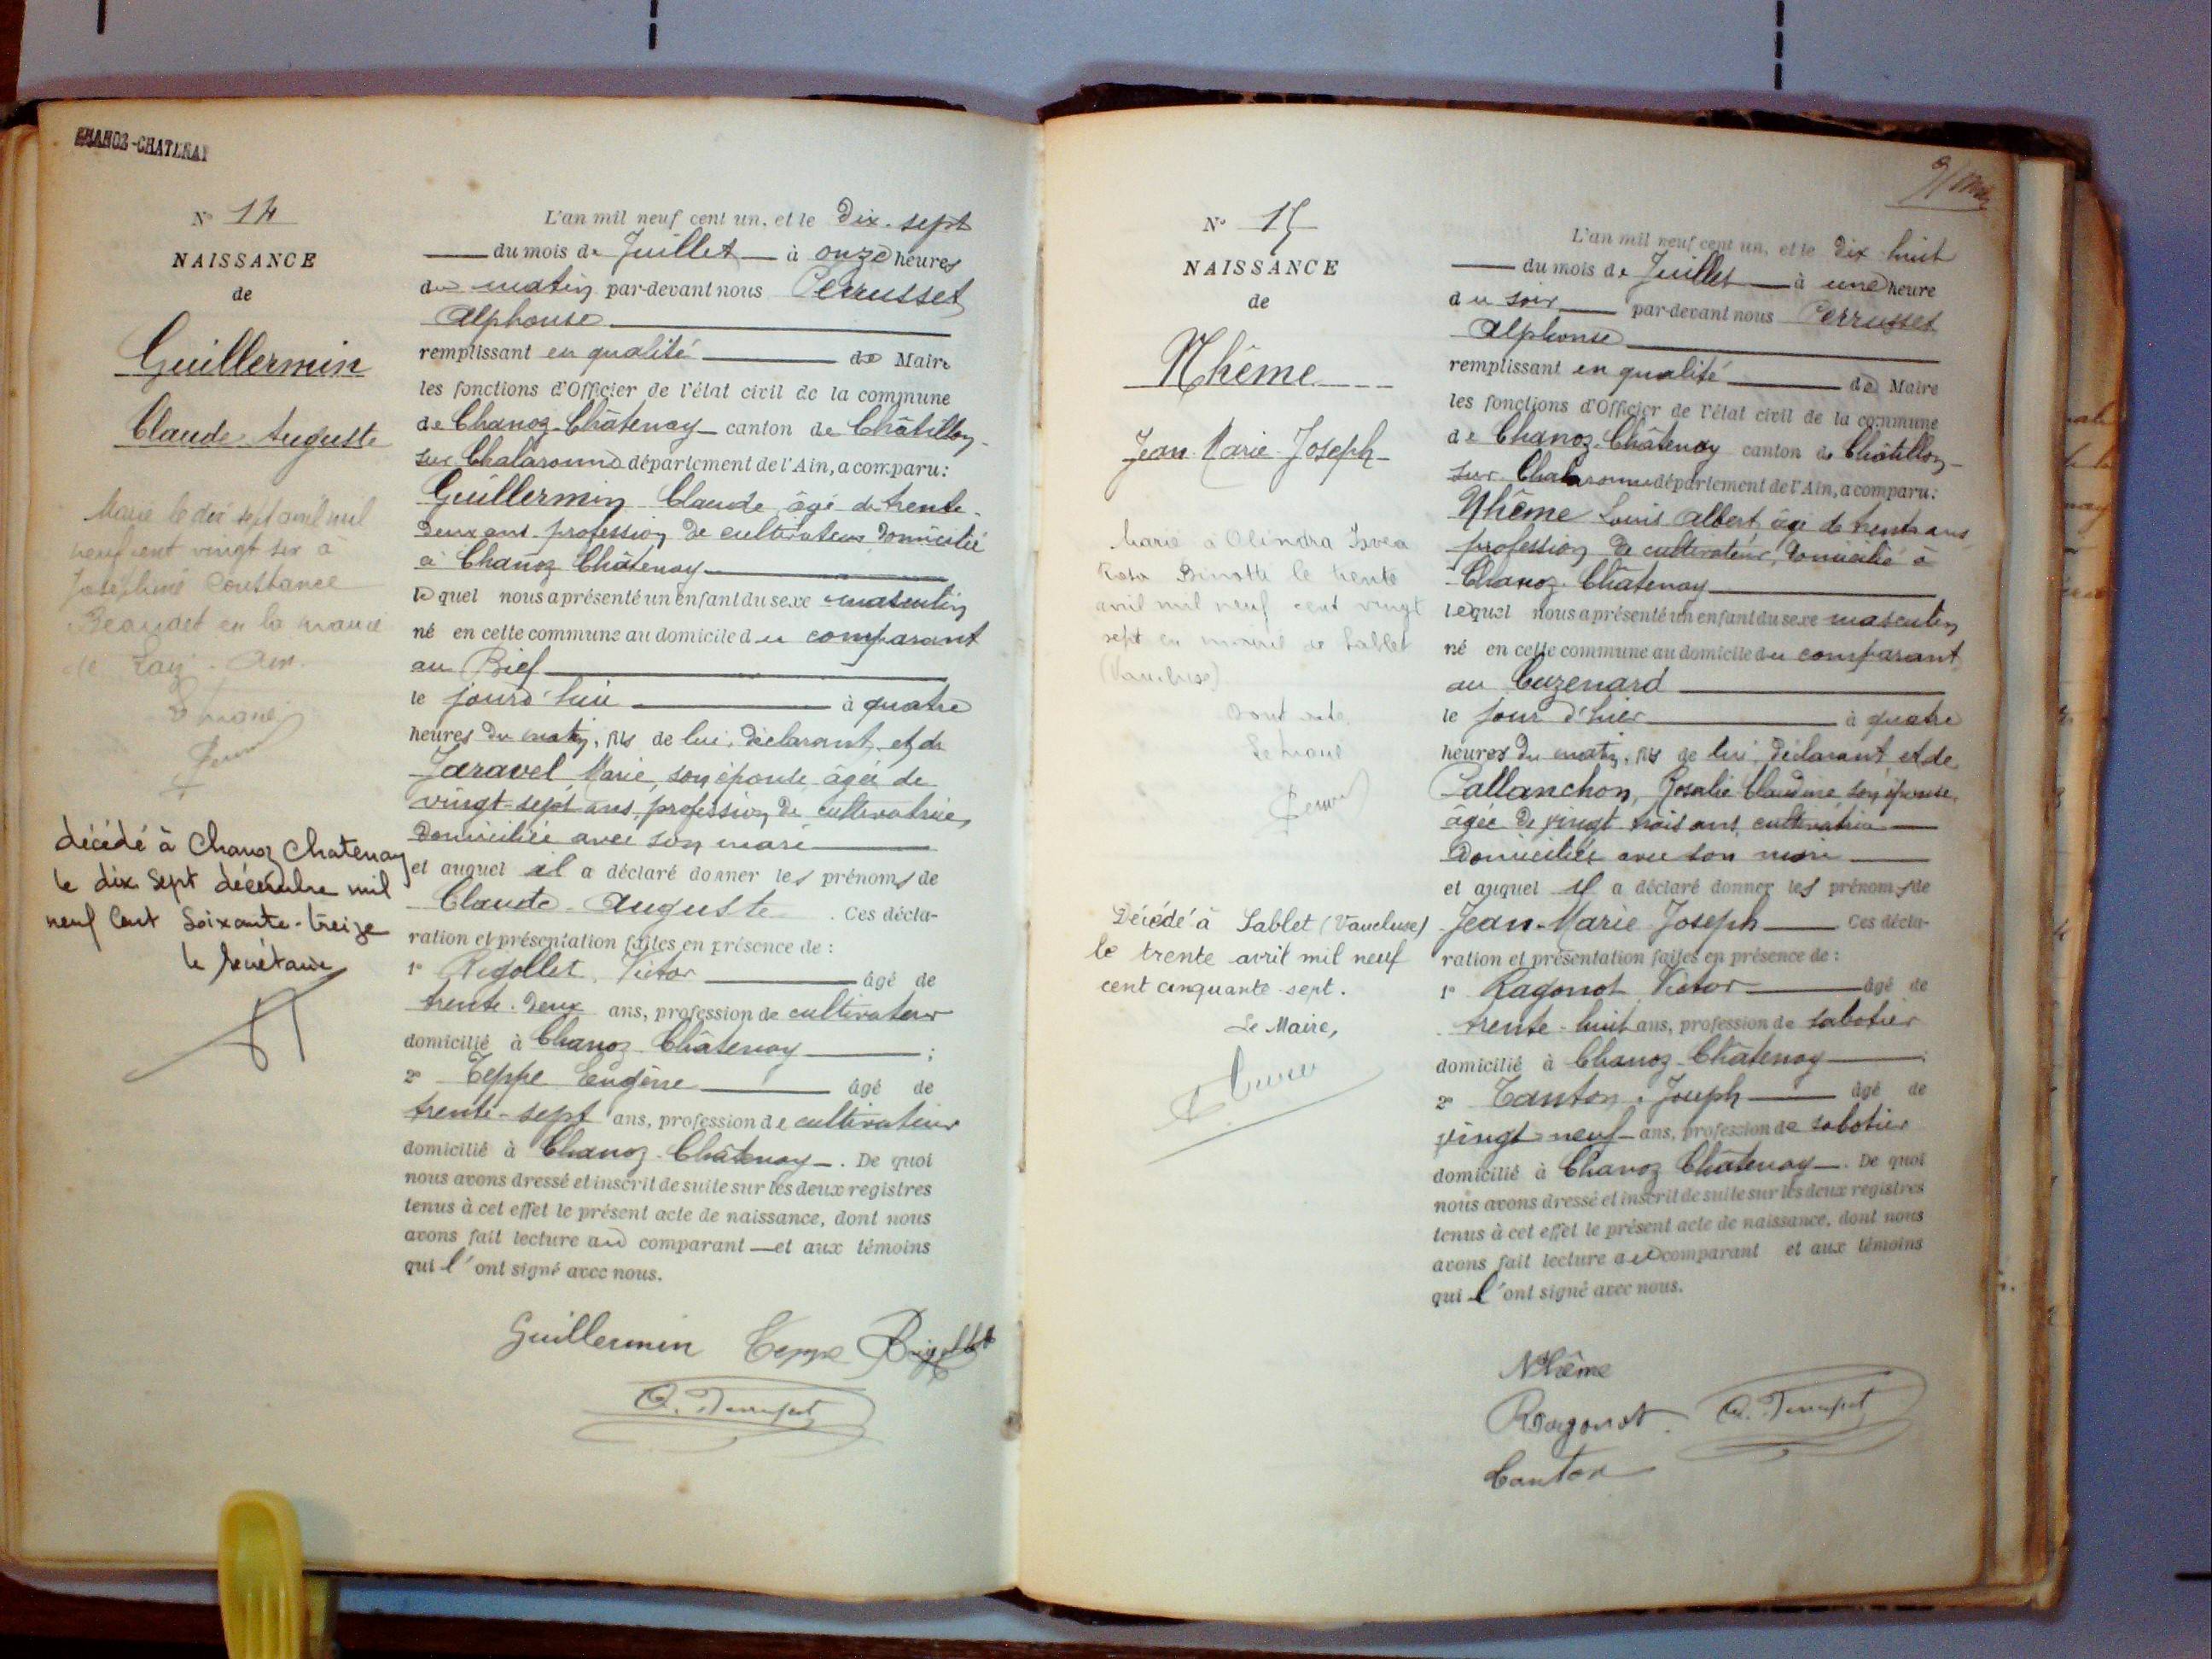 CHANOZ-CHATENAY
N° 14
NAISSANCE
de
Guillermin
Claude Auguste
Marié le dix sept avril mil
neuf cent vingt six à
Joséphine Constance
Beaudet en la mairie
de Laiz. Ain.
Le Maire
décédé à Chanoz Chatenay
le dix sept décembre mil
neuf cent soixante-treize
le secrétaire
L'an mil neuf cent un, et le dix-sept
du mois de Juillet à onze heures
du matin par-devant nous Perrusset
Alphonse
remplissant en qualité de Maire
les fonctions d'Officier de l'état civil de la commune
de Chanoz-Châtenay canton de Châtillon-
sur Chalaronne département de l'Ain, a comparu:
Guillermin Claude, âgé de trente-
deux ans profession de cultivateur domicilié
à Chanoz Châtenay
lequel nous a présenté un enfant du sexe masculin
né en cette commune au domicile du comparant
au Bief
le jourd'hui à quatre
heures du matin, fils de lui, déclarant et de
Jaravel Marie, son épouse, âgée de
vingt-sept ans, profession de cultivatrice,
domiciliée avec son mari
et auquel il a déclaré donner les prénoms de
Claude-Auguste. Ces décla-
ration et présentation faites en présence de:
1° Rigollet, Victor âgé de
trente-deux ans, profession de cultivateur
domicilié à Chanoz-Châtenay;
2° Teppe Eugène âgé de
trente-sept ans, profession de cultivateur
domicilié à Chanoz-Châtenay. De quoi
nous avons dressé et inscrit de suite sur les deux registres
tenus à cet effet le présent acte de naissance, dont nous
avons fait lecture au comparant et aux témoins
qui l'ont signé avec nous.
Guillermin Teppe Rigollet
A. Perrusset
N° 15
NAISSANCE
de
Nhême
Jean-Marie-Joseph
Marié à Olindra
Rosa Binotti le trente
avril mil neuf cent vingt
sept en mairie de Sablet
(Vaucluse)
Dont acte
Le Maire
Décédé à Sablet (Vaucluse)
le trente avril mil neuf
cent cinquante-sept.
Le Maire,
L'an mil neuf cent un, et le dix-huit
du mois de Juillet à une heure
du soir par-devant nous Perrusset
Alphonse
remplissant en qualité de Maire
les fonctions d'Officier de l'état civil de la commune
de Chanoz-Châtenay canton de Châtillon-
sur Chalaronne département de l'Ain, a comparu:
Nhême Louis Albert, âgé de trente ans,
profession de cultivateur, domicilié à
Chanoz-Châtenay
lequel nous a présenté un enfant du sexe masculin
né en cette commune au domicile du comparant
au Cuzenard
le jour d'hier à quatre
heures du matin, fils de lui, déclarant et de
Pallanchon, Rosalie Claudine son épouse,
âgée de vingt-trois ans, cultivatrice
domiciliée avec son mari
et auquel il a déclaré donner les prénoms de
Jean-Marie-Joseph Ces décla-
ration et présentation faites en présence de:
1° Ragonot, Victor âgé de
trente-huit ans, profession de sabotier
domicilié à Chanoz-Châtenay
2° Tanton, Joseph âgé de
vingt-neuf ans, profession de sabotier
domicilié à Chanoz Châtenay. De quoi
nous avons dressé et inscrit de suite sur les deux registres
tenus à cet effet le présent acte de naissance, dont nous
avons fait lecture au comparant et aux témoins
qui l'ont signé avec nous.
Nhême
Ragonot. A. Perrusset
Tanton